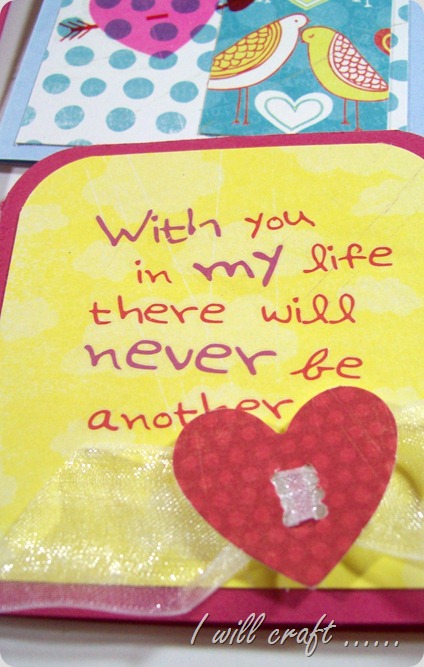 With you
in my life
there will
never be
another
I will craft ......